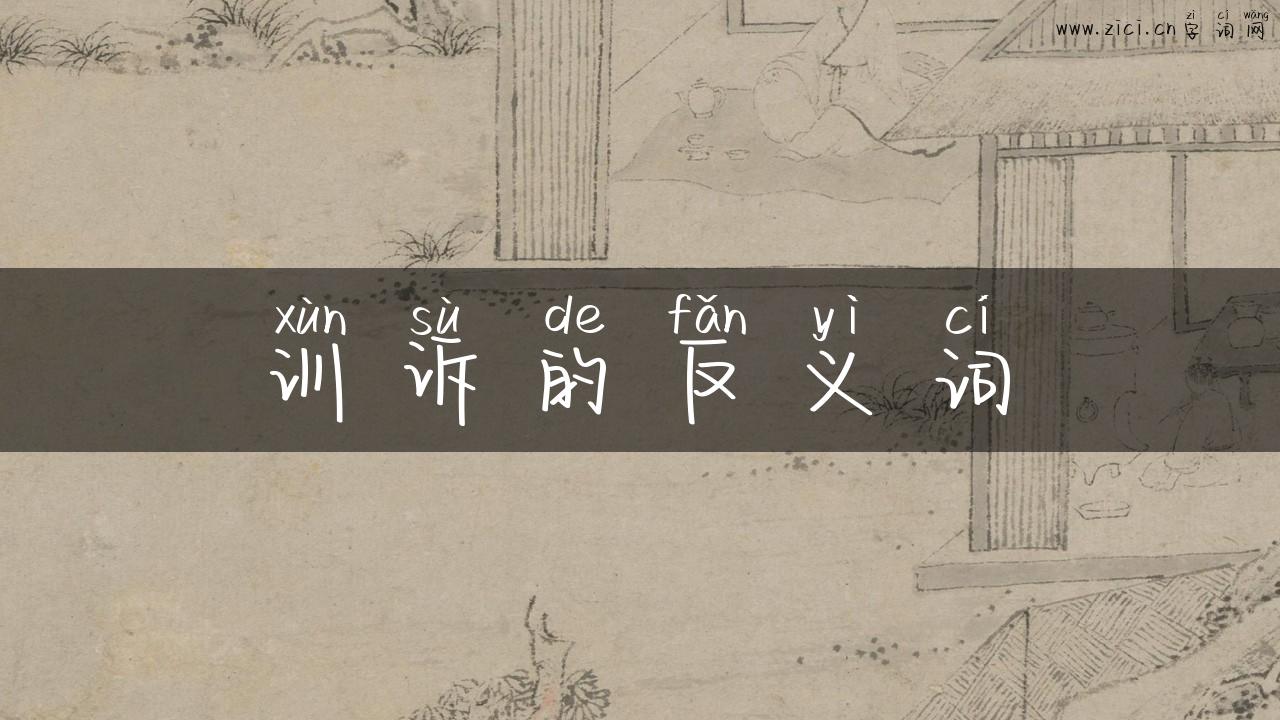 zì cí wǎng
www.zici.cn 字词网
xùn sù de fǎn yì cí
训诉的反义词